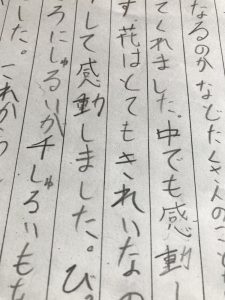 なるのか などたくさんのこと
てくれました。中でも感動し
す。花はとてもきれいなの
して感動しました。び
ろにしゅるいが千しゅるいも
した。これから